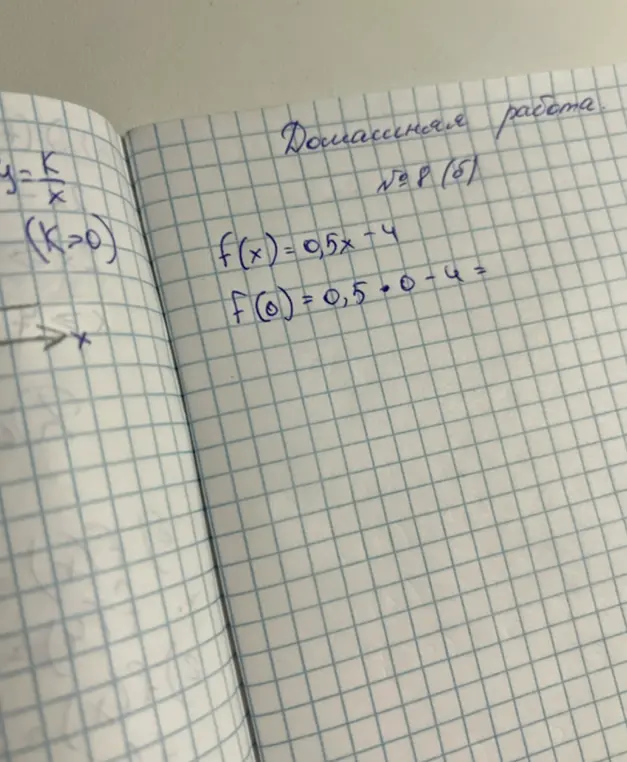 y = K/x
(K>0)
x
Домашняя работа.
№ 8 (б)
f(x) = 0,5x - 4
f(0) = 0,5 • 0 - 4 =